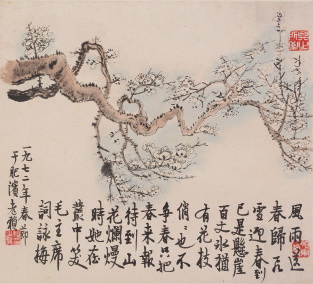 風雨送
春歸飛
雪迎春到
已是懸崖
百丈冰猶
有花枝
俏〻也不
爭春只把
春來報
待到山
花爛熳
時她在
叢中笑
毛主席
詞詠梅
一九七二年春節
于肥濱老